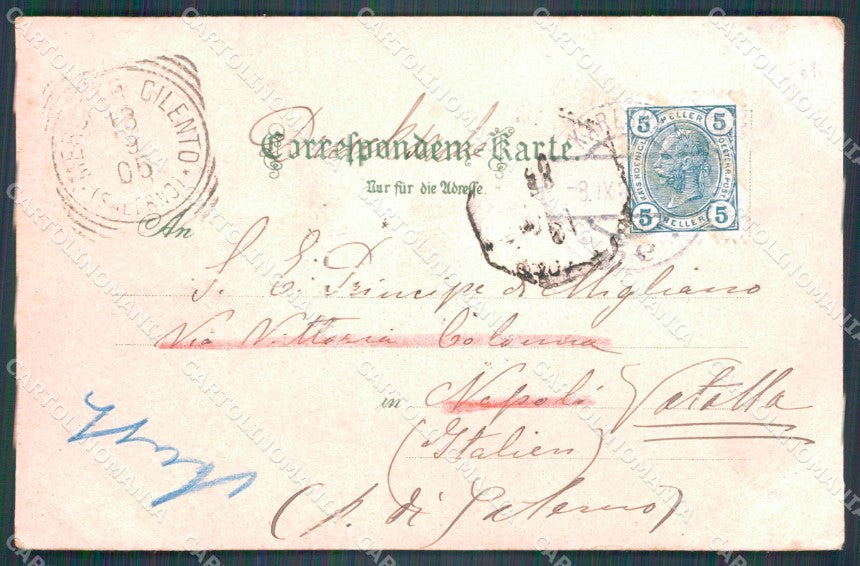 Correspondenz-Karte.
Nur für die Adresse.
5 HELLER 5
5 HELLER 5
CILENTO
(SALERNO)
05
KARL
-8.IX
An
S. E. Principe di Migliano
Via Vittoria Colonna
in Napoli Vatolla
(Italien)
(p. di Salerno)
CARTOLINOMANIA